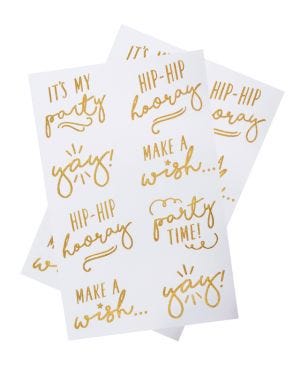 IT'S MY
party
HIP-HIP
hooray
yay!
MAKE A
wish...
HIP-HIP
hooray
party
TIME!
MAKE A
wish...
yay!
HIP-HIP